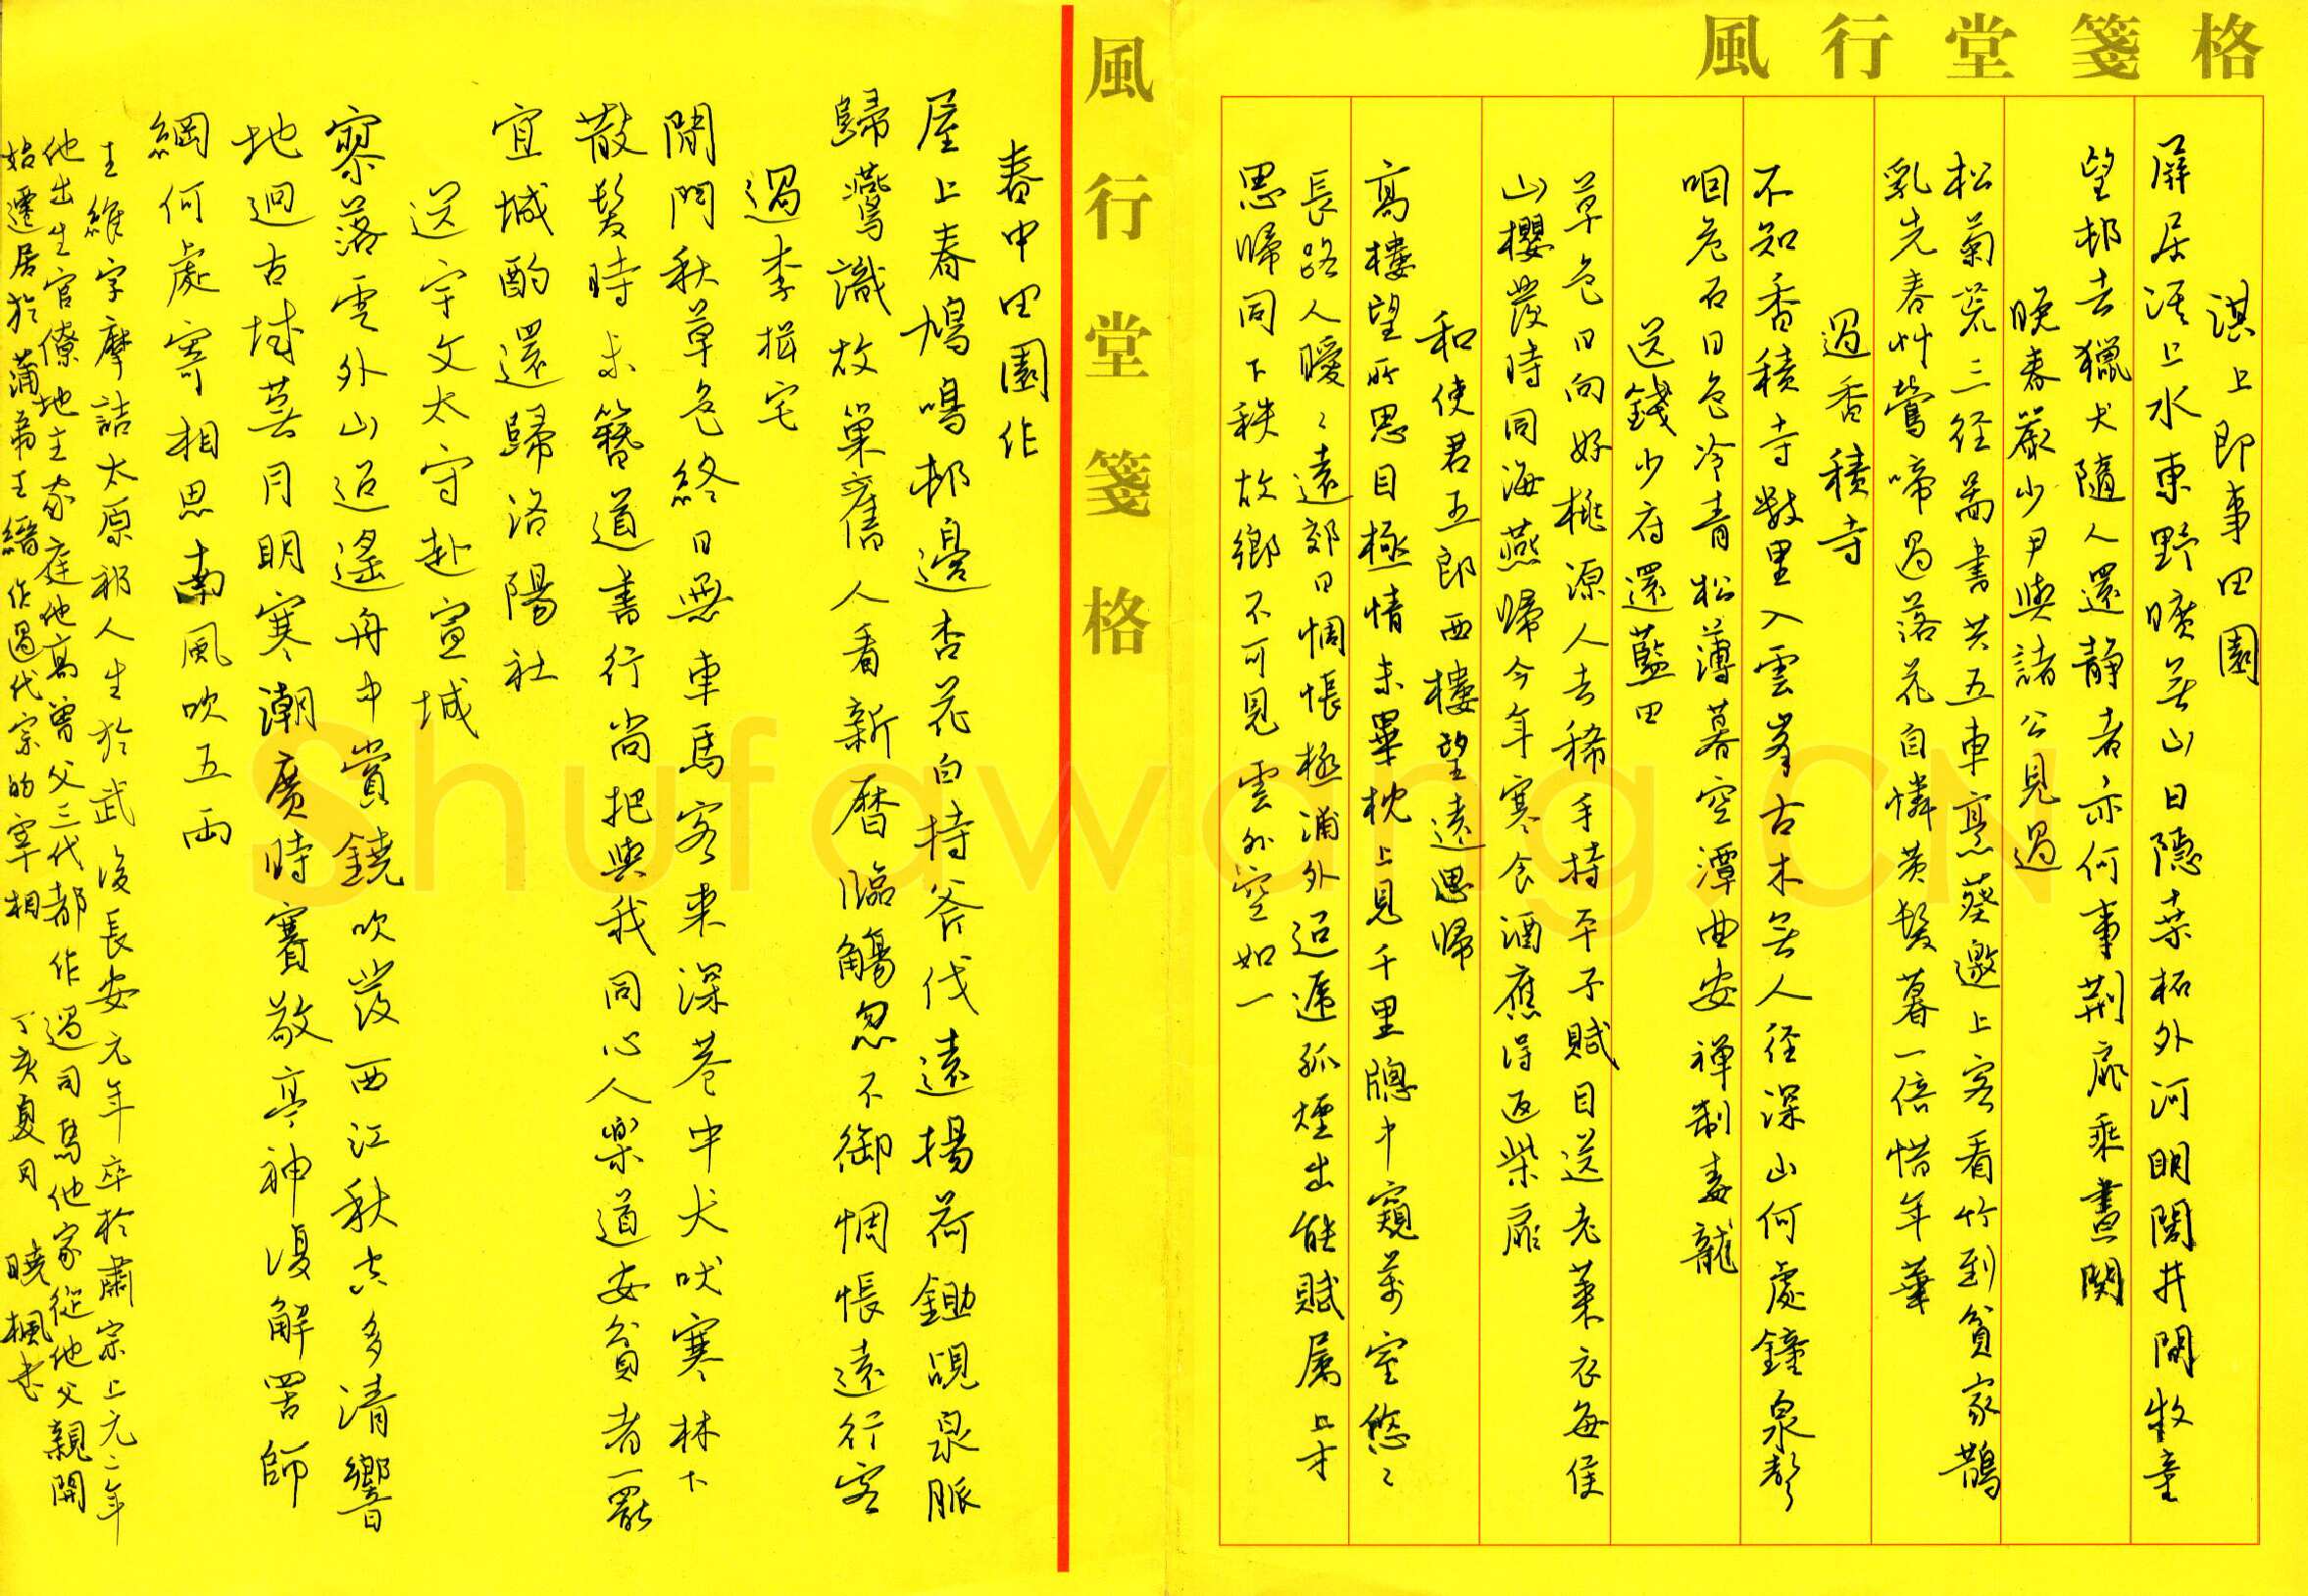 風行堂箋格
淇上即事田園
屏居淇上水東野曠無山日隱桑柘外河明閭井間牧童
望邨去獵犬隨人還静者亦何事荊扉乘晝関
晚春嚴少尹與諸公見過
松菊荒三径圖書共五車烹葵邀上客看竹到貧家鵲
乳先春艸鶯啼過落花自憐黄髮暮一倍惜年華
過香積寺
不知香積寺数里入雲峯古木無人径深山何處鐘泉聲
咽危石日色冷青松薄暮空潭曲安禅制毒龍
送錢少府還藍田
草色日向好桃源人去稀手持平子賦目送老莱衣每侯
山櫻發時同海燕歸今年寒食酒應得返柴扉
和使君五郎西樓望遠思歸
高樓望所思目極情未畢枕上見千里牕中窺萬室悠〻
長路人曖〻遠郊日惆悵極浦外迢遞孤煙出能賦属上才
思歸同下秩故鄉不可見雲外空如一
風行堂箋格
春中田園作
屋上春鳩鳴邨邊杏花白持斧伐遠揚荷鋤覘泉脈
歸鷰識故巢舊人看新曆臨觴忽不御惆悵遠行客
過李揖宅
閒門秋草色終日無車馬客来深巷中犬吠寒林下
散髮時未簪道書行尚把與我同心人樂道安貧者一罷
宜城酌還歸洛陽社
送宇文太守赴宣城
寥落雲外山迢遙舟中賞鐃吹發西江秋空多清響
地迥古城蕪月明寒潮廣時賽敬亭神復解罟師
網何處寄相思南風吹五兩
王維字摩詰太原祁人生於武後長安元年卒於肅宗上元二年
他出生官僚地主家庭他高曾父三代都作過司馬他家從他父親開
始遷居於蒲帝王縉作過代宗的宰相 丁亥夏月 曉楓書
Shufawang.CN